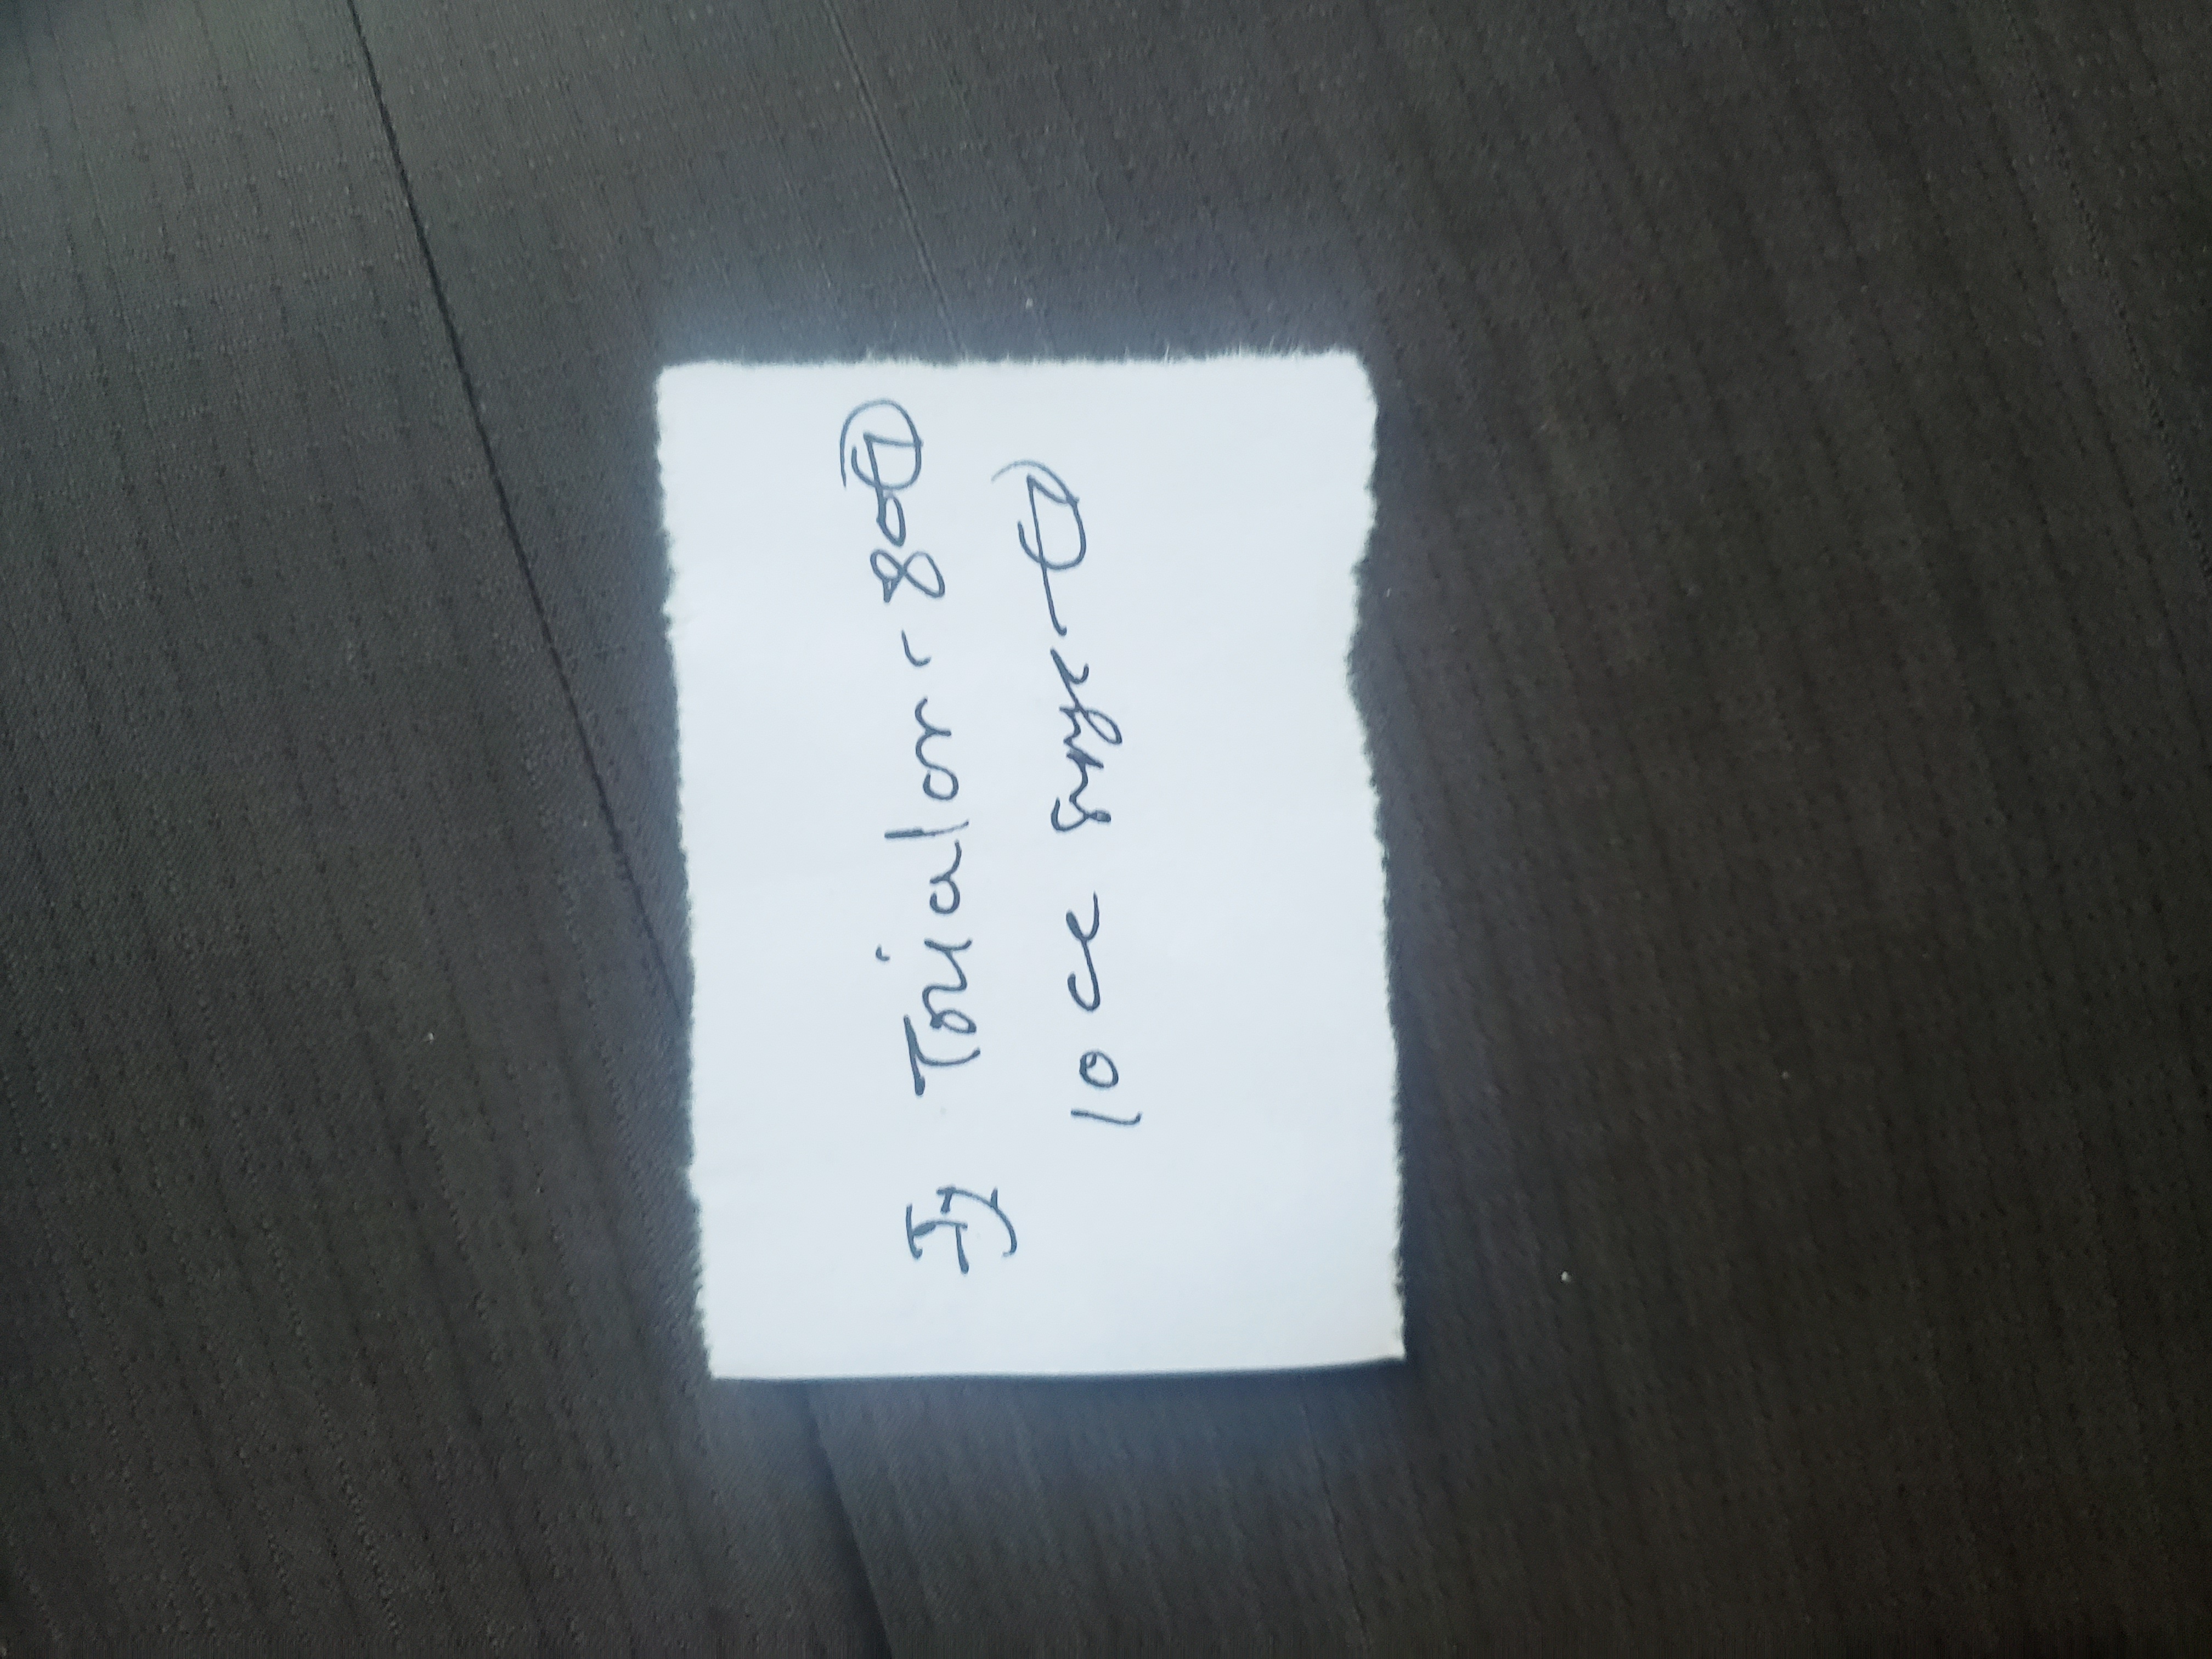 Ij Trialon - 80 ①
10 cc syrye - ①